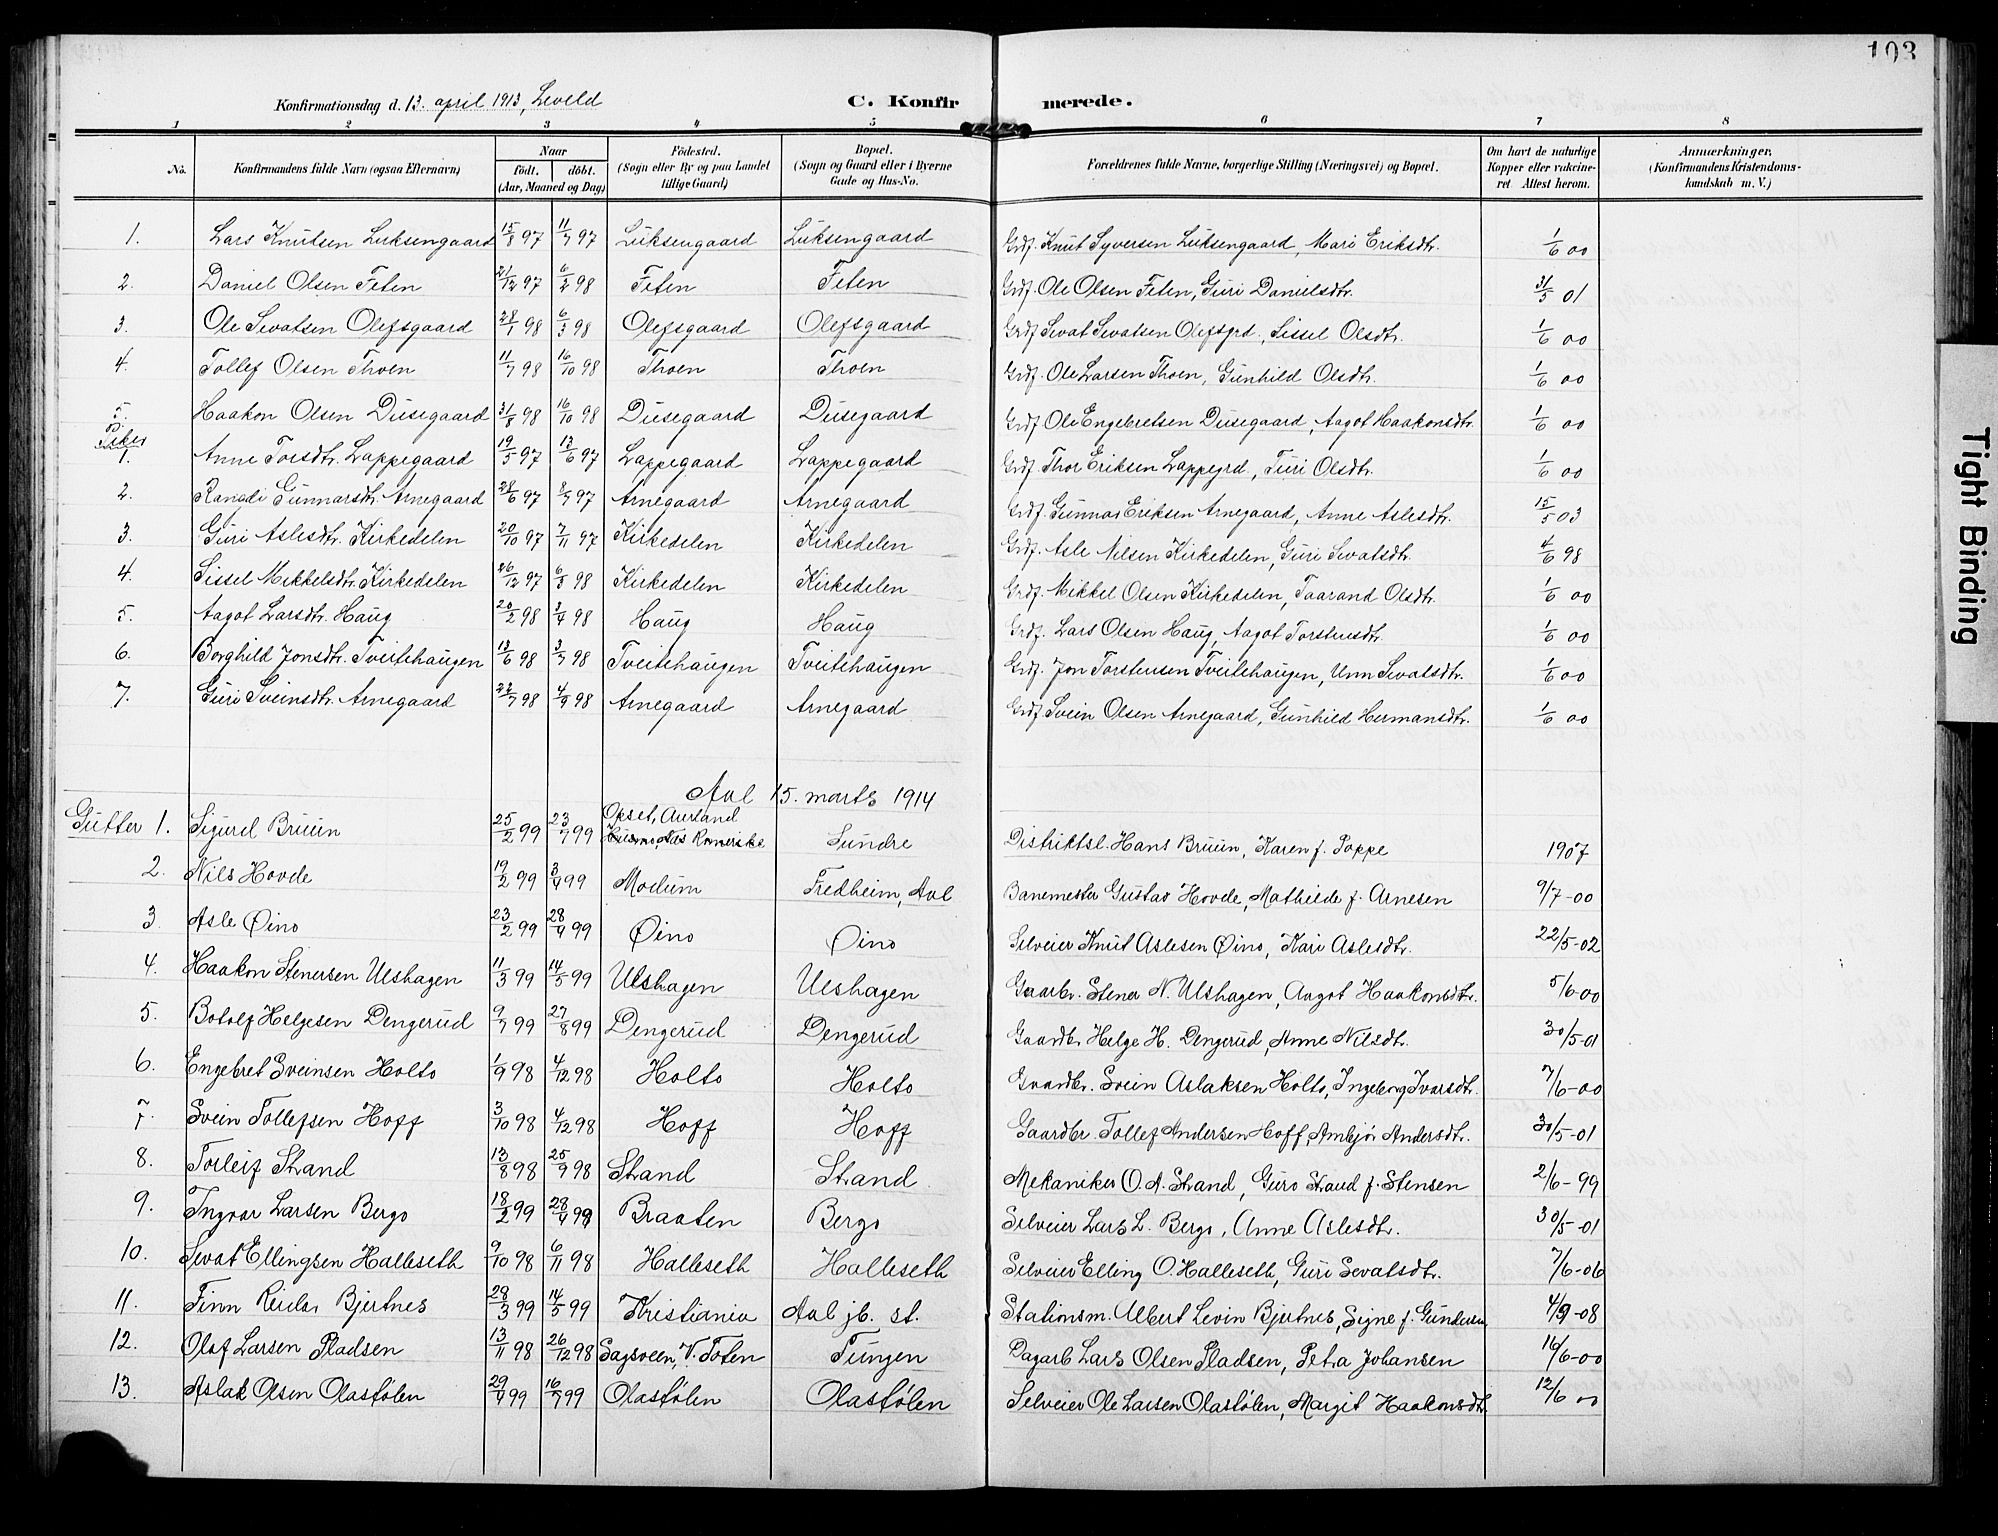 103
Konfirmationsdag d. 13. april 1913, Leveld C. Konfirmerede.
1 2 3 4 5 6 7 8
No. Konfirmandens fulde Navn (ogsaa Efternavn) Naar født. døbt. (Aar, Maaned og Dag) Fødested. (Sogn eller By og paa Landet tillige Gaard) Bopæl. (Sogn og Gaard eller i Byerne Gade og Hus-No. Forældrenes fulde Navne, borgerlige Stilling (Næringsvei) og Bopæl. Om havt de naturlige Kopper eller vakcineret. Attest herom. Anmærkninger. (Konfirmandens Kristendomskundskab m. V.)
1. Lars Knutsen Luksengaard 15/8 97 11/7 97 Luksengaard Luksengaard Grdf. Knut Syversen Luksengaard, Mari Eriksdtr. 1/6 00
2. Daniel Olsen Feten 21/12 97 6/2 98 Feten Feten Grdf. Ole Olsen Feten, Guri Danielsdtr. 31/5 01
3. Ole Sevatsen Olefsgaard 28/1 98 6/3 98 Olefsgaard Olefsgaard Grdf Sevat Sevatsen Olefsgrd, Sissel Olsdtr. 1/6 00
4. Tollef Olsen Thoen 11/7 98 16/10 98 Thoen Thoen Grdf. Ole Larsen Thoen, Gunhild Olsdtr. 1/6 00
5. Haakon Olsen Dusegaard 31/8 98 16/10 98 Dusegaard Dusegaard Grdf Ole Engebretsen Dusegaard, Aagot Haakonsdtr. 1/6 00
Piker
1. Anne Torsdtr. Lappegaard 19/5 97 13/6 97 Lappegaard Lappegaard Grdf. Thor Eriksen Lappegrd, Turi Olsdtr. 1/6 00
2. Rangdi Gunnarsdtr Arnegaard 28/6 97 8/7 97 Arnegaard Arnegaard Grdf. Gunnar Eriksen Arnegaard, Anne Aslesdtr. 15/5 03
3. Guri Aslesdtr. Kirkedelen 20/10 97 7/11 97 Kirkedelen Kirkedelen Grdf. Asle Nilsen Kirkedelen, Guri Sevatsdtr. 4/6 98
4. Sissel Mikkelsdtr. Kirkedelen 26/12 97 6/3 98 Kirkedelen Kirkedelen Grdf. Mikkel Olsen Kirkedelen, Taarand Olsdtr. 1/6 00
5. Aagot Larsdtr. Haug 20/2 98 3/4 98 Haug Haug Grdf. Lars Olsen Haug, Aagot Torstensdtr. 1/6 00
6. Borghild Jonsdtr. Tveitehaugen 13/6 98 3/7 98 Tveitehaugen Tveitehaugen Grdf. Jon Torstensen Tveitehaugen, Unn Sevatsdtr. 1/6 00
7. Guri Sveinsdtr. Arnegaard 22/7 98 4/9 98 Arnegaard Arnegaard Grdf Svein Olsen Arnegaard, Gunhild Hermansdtr. 1/6 00
Aal 15. marts 1914
Gutter 1. Sigurd Bruun 25/2 99 23/7 99 Opset, Aurland Nes Romerike Sundre Distriktsl. Hans Bruun, Karen f. Poppe 1907
2. Nils Hovde 19/2 99 3/4 99 Modum Fredheim, Aal Banemester Gustav Hovde, Mathilde f. Arnesen 9/7-00
3. Asle Øino 23/2 99 28/4 99 Øino Øino Selveier Knut Aslesen Øino, Kari Aslesdtr. 22/5-02
4. Haakon Stenersen Ulshagen 11/3 99 14/5 99 Ulshagen Ulshagen Gaarbr. Stener N. Ulshagen, Aagot Haakonsdtr. 5/6-00
5. Botolf Helgesen Dengerud 9/7 99 27/8 99 Dengerud Dengerud Gaardbr Helge H. Dengerud, Anne Nilsdtr. 30/5-01
6. Engebret Sveinsen Holto 1/9 98 4/12 98 Holto Holto Gaardbr. Svein Aslaksen Holto, Ingeborg Ivarsdtr. 7/6-00
7. Svein Tollefsen Hoff 3/10 98 4/12 98 Hoff Hoff Gaardbr. Tollef Andersen Hoff, Ambjør Andersdtr. 30/5-01
8. Torleif Strand 13/8 98 25/9 98 Strand Strand Mekaniker O. A. Strand, Guro Strand f. Stensen 2/6-99
9. Ingvar Larsen Bergo 18/2 99 28/4 99 Braaten Bergo Selveier Lars L. Bergo, Anne Aslesdtr. 30/5-01
10. Sevat Ellingsen Halleseth 9/10 98 6/11 98 Halleseth Halleseth Selveier Elling O. Halleseth, Guri Sevatsdtr. 7/6-06
11. Finn Reidar Bjertnes 28/3 99 14/5 99 Kristiania Aal jb. st. Stationsm. Albert Levin Bjertnes, Signe f. Gundersen 4/9-08
12. Olaf Larsen Pladsen 13/11 98 26/12 98 Sagsveen, V. Toten Tungen Dagarb Lars Olsen Pladsen, Petra Johansen 16/6-00
13. Aslak Olsen Olastølen 29/4 99 16/7 99 Olastølen Olastølen Selveier Ole Larsen Olastølen, Margit Haakonsdtr. 12/6 00
Tight Binding